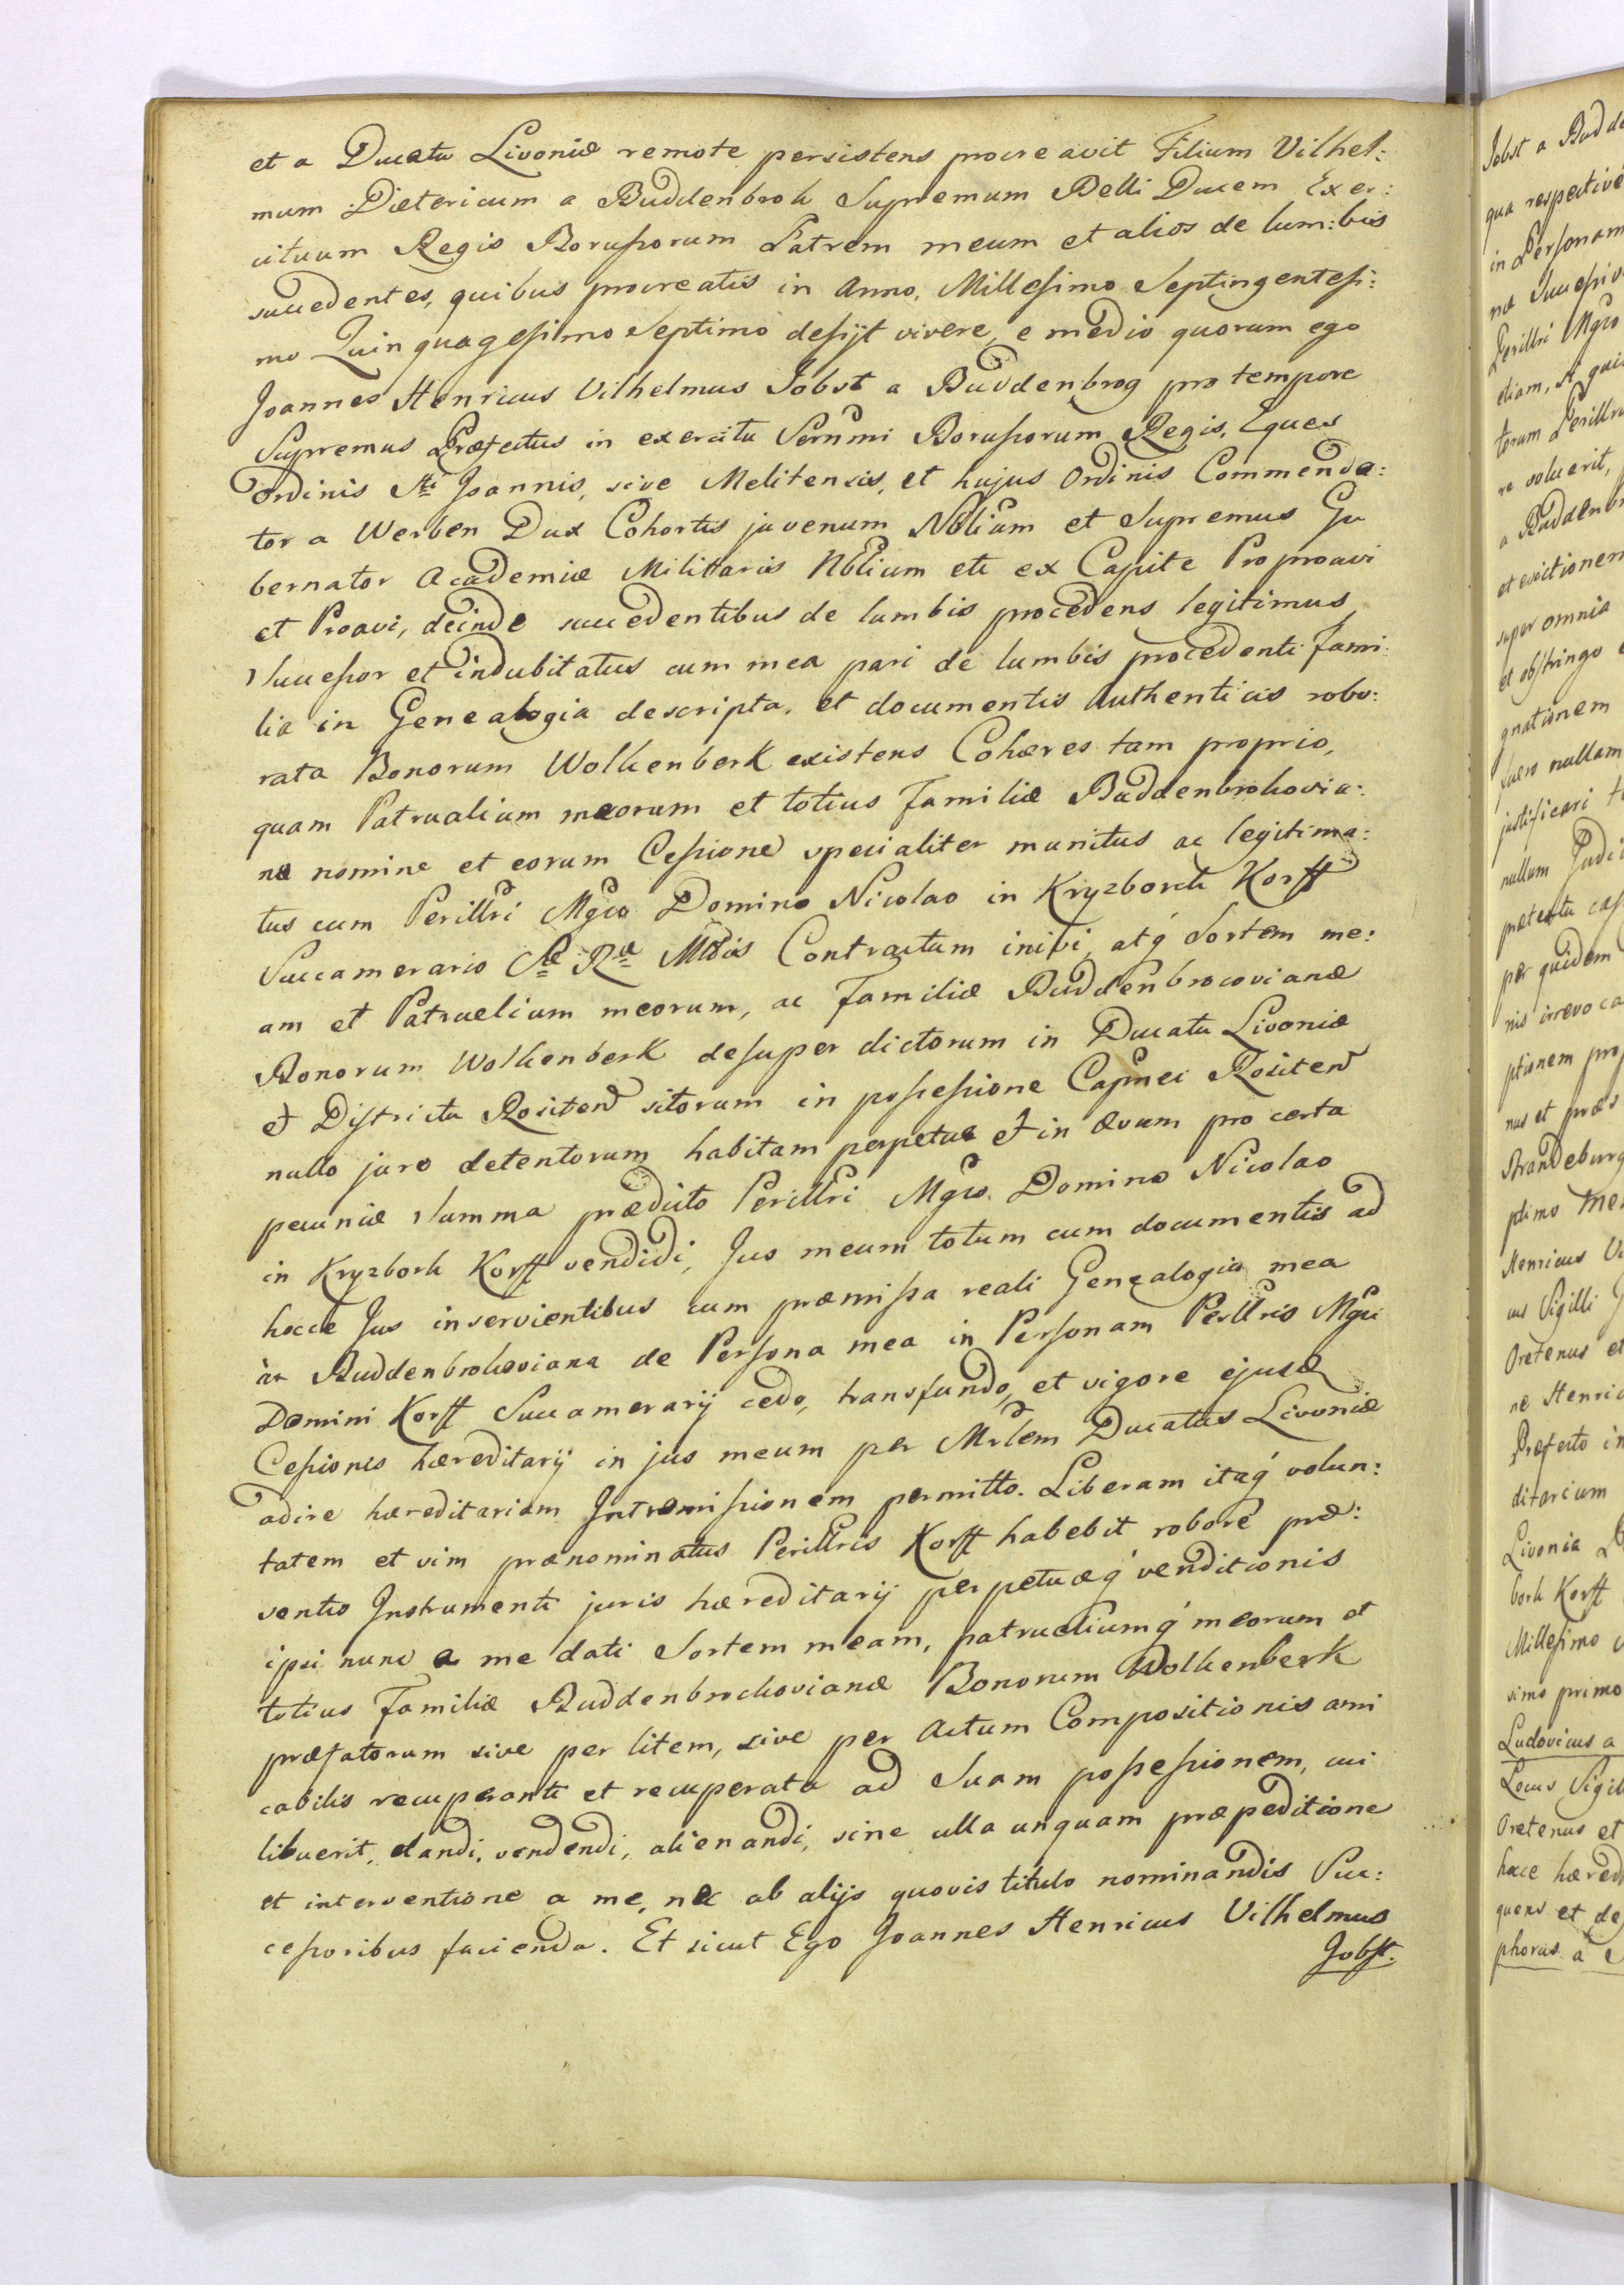 et a Ducatu Livoniæ remote persistens procreavit Filium Vilhel:
mum Dietericum a Buddenbrok Supremum Belli Ducem Exer:
cituum Regis Borußorum Patrem meum et alios de lum:bis
succedentes, quibus procreatis in Anno, Millesimo Septingentesi:
mo Quinquagesimo Septimo desijt vivere, e medio quorum ego
Joannes Henricus Vilhelmus Jobst a Buddenbrog pro tempore
Supremus Præfectus in exercitu Sernmi Borußorum Regis, Eques
Ordinis Sti Joannis, sive Melitensis, et hujus Ordinis Commenda:
tor a Werben Dux Cohortis juvenum Nblium et Supremus Gu
bernator Academiæ Militaris Nblium etc ex Capite Proproavi
et Proavi, deinde succedentibus de lumbis procedens legitimus
Suceßor et indubitatus cum mea pari de lumbis procedenti fami:
lia in Genealogia descripta, et documentis Authenticis robo:
rata Bonorum Wolkenberk existens Cohæres tam proprio,
quam Patrualium meorum et totius Familiæ Buddenbrokovia:
næ nomine et eorum Ceßione specialiter munitus ac legitima:
tus cum Perillri Mgco Domino Nicolao in Kryzbork Korff
Succamerario Sæ Ræ Mttis Contractum inivi, atq́ Sortem me:
am et Patruelium meorum, ac Familiæ Buddenbrocovianæ
Bonorum Wolkenberk desuper dictorum in Ducatu Livoniæ
et Districtu Rositen sitorum in poßeßione Capnei Rositen
nullo jure detentorum habitam perpetuæ et in ævum pro certa
pecuniæ Summa prædicto Perillri Mgco Domino Nicolao
in Kryzbork Korff vendidi, Jus meum totum cum documentis ad
hocce Jus inservientibus cum præmißa reali Genealogia mea
àc Buddenbrokoviana de Persona mea in Personam Perillris Mgci
Domini Korff Succamerarij cedo, transfundo, et vigore ejusd
Ceßionis hæreditarij in jus meum per Mrlem Ducatus Livoniæ
adire hæreditariam Intromißionem permitto. Liberam itaq́ volun:
tatem et vim prænominatus Perillris Korff habebit robore præ:
sentis Instrumenti juris hæreditarij perpetuæq́ venditionis
ipsi nunc a me dati Sortem meam, patrueliumq́ meorum et
totius Familiæ Buddenbrockovianæ Bonorum Wolkenberk
præfatorum sive per litem, sive per Actum Compositionis ami
cabilis recuperanti et recuperata ad Suam poßeßionem, cui
libuerit, dandi, vendendi, alienandi, sine ulla unquam præpeditione
et interventione a me, nec ab alijs quovis titulo nominandis Suc:
ceßoribus facienda. Et sicut Ego Joannes Henricus Vilhelmus
Jobst.
Jobst a Budde
qua respective
in Personam
Perillri Mgco
etiam, et
torum Perillr
re voluerit,
a Buddenbr
et evictionem
super omnia
et obstringo
gnationem
nullam
justificari
nullum Judi
per quidem
nis irrevoca
ptionem pro
nus et præs
Brandeburg
ptimo
Henricus Vi
us Sigilli
Oretenus et
ne Henric
Præfecto in
ditarium
Livonia
bork Korff
Millesimo
simo primo
Ludovicus a
Locus Sigil
Oretenus et
hæcce hæred
quens et de
phorus a